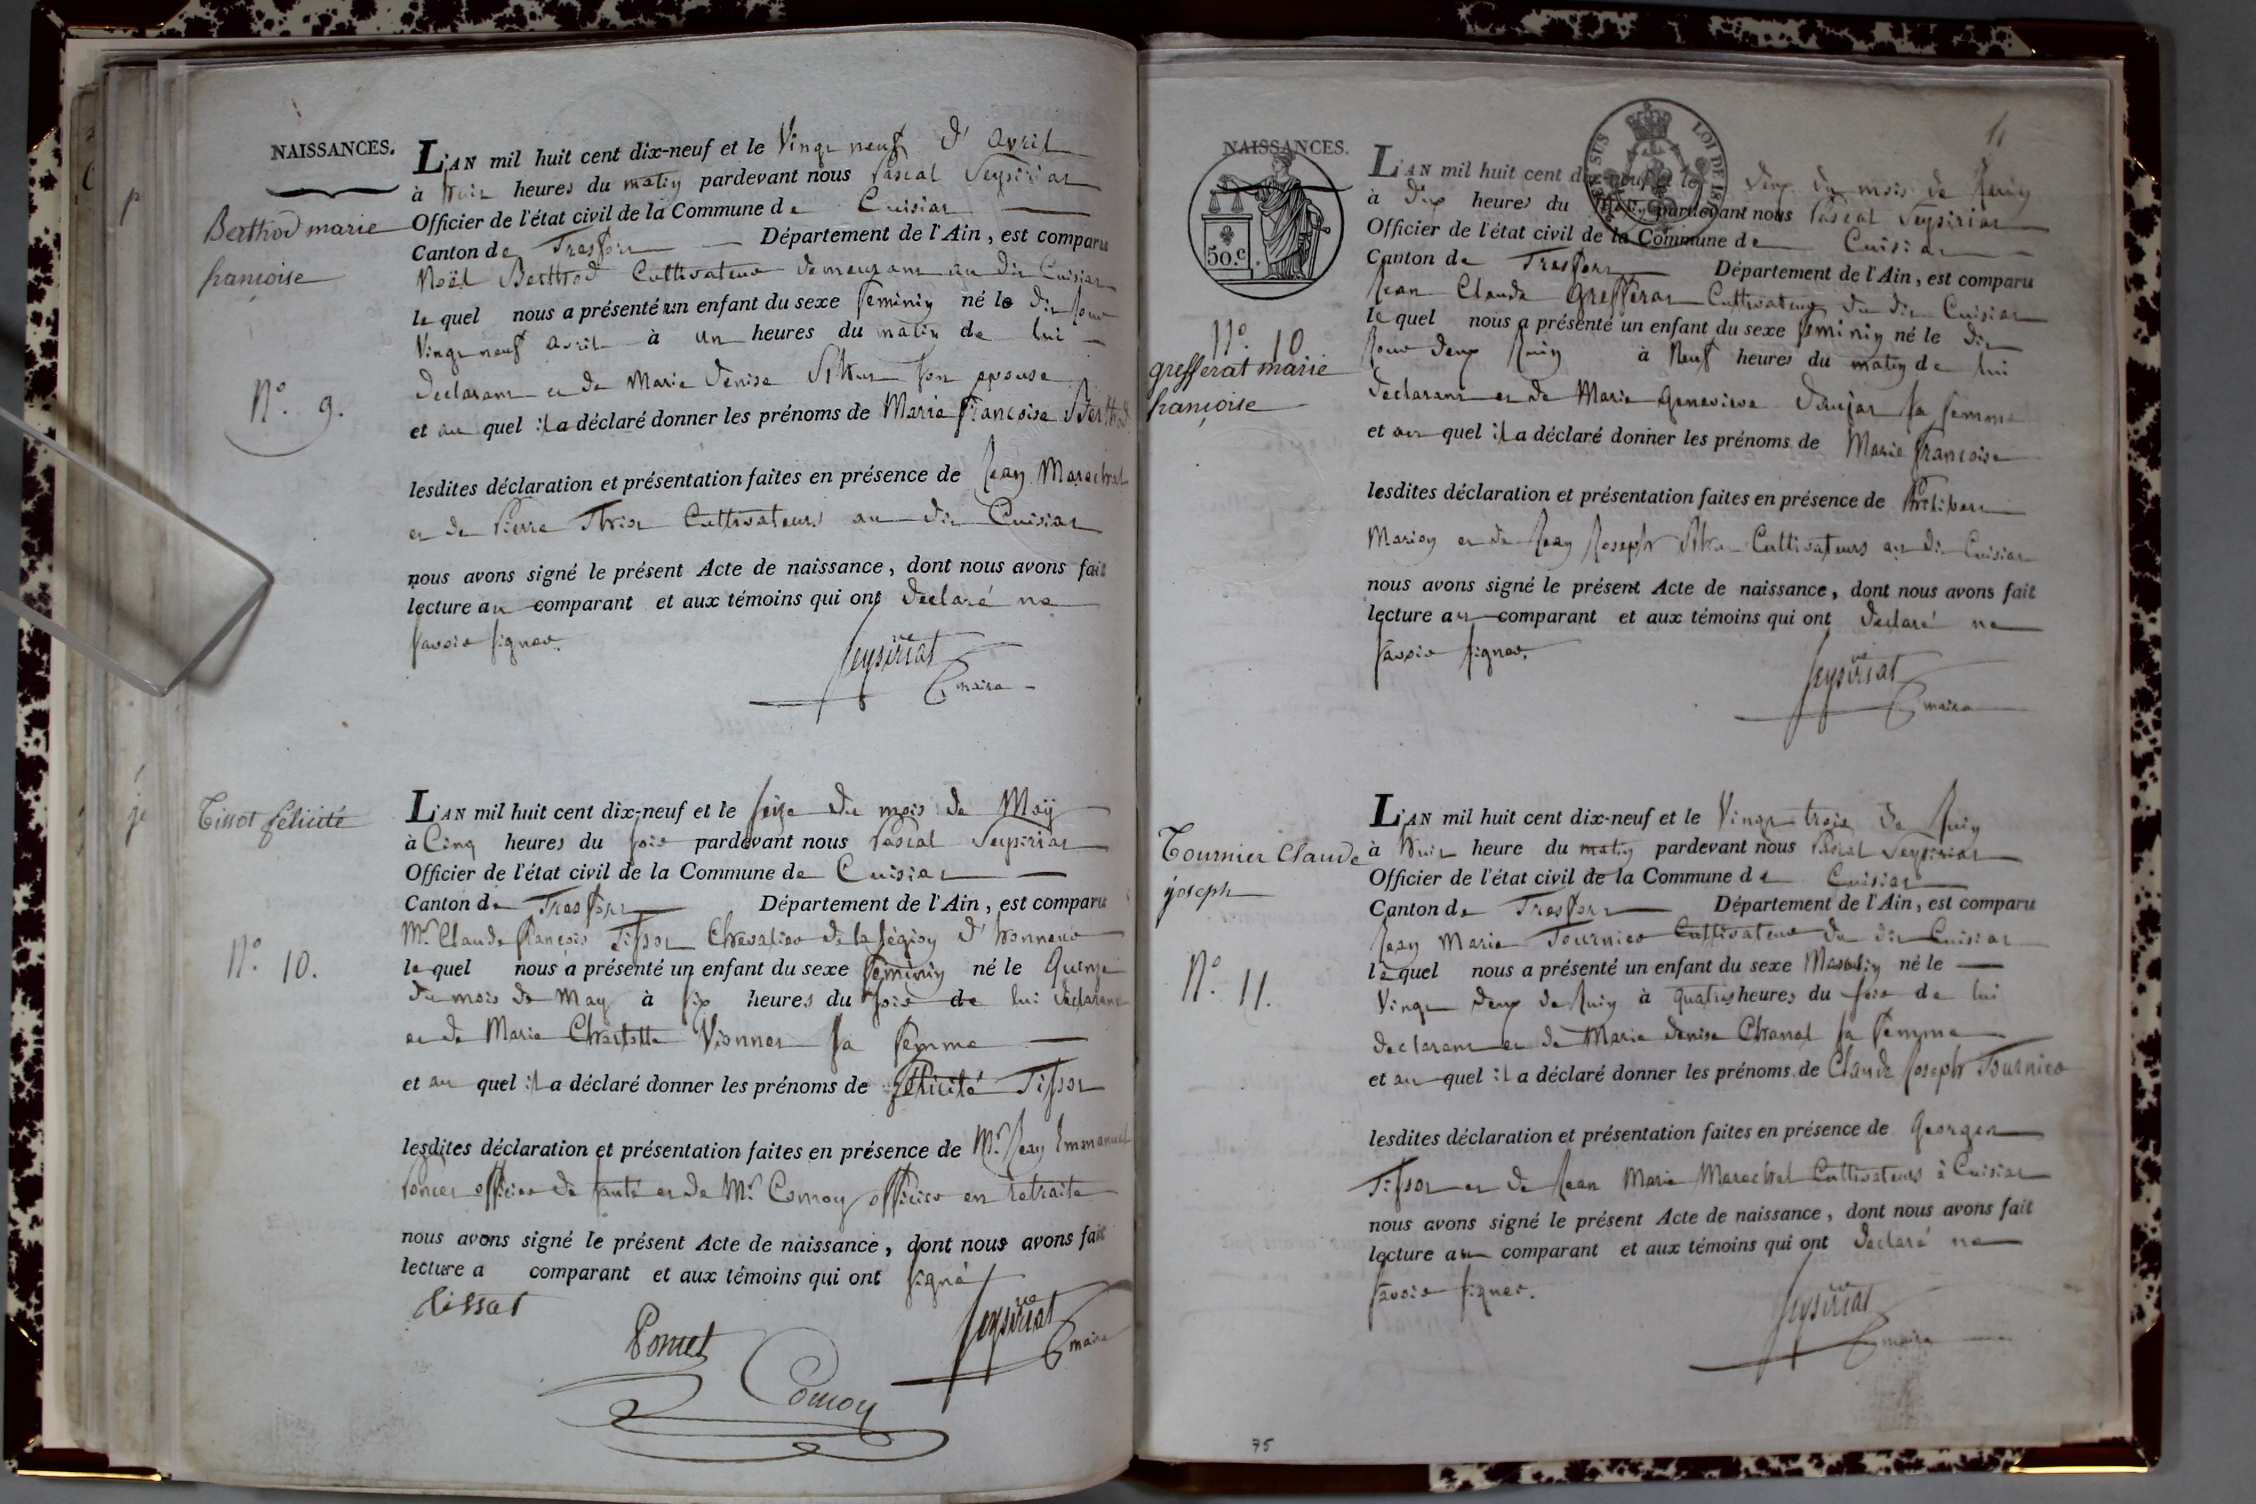 NAISSANCES.
Berthod marie
françoise
N.o 9.
L'AN mil huit cent dix-neuf et le Vingt neuf d'avril
à huit heures du matin pardevant nous Pascal Seysiriat
Officier de l'état civil de la Commune de Cuisiat
Canton de Treffort Département de l'Ain, est comparu
Noël Berthod Cultivateur demeurant au dit Cuisiat
le quel nous a présenté un enfant du sexe feminin né le dit Jour
Vingt neuf avril à un heures du matin de lui
declarant et de Marie denise son epouse
et au quel il a déclaré donner les prénoms de Marie françoise Berthod
lesdites déclaration et présentation faites en présence de Jean Marechal
et de Pierre Cultivateurs au dit Cuisiat
nous avons signé le présent Acte de naissance, dont nous avons fait
lecture au comparant et aux témoins qui ont declaré ne
savoir signer.
Seysiriat
maire
Tissot félicité
N.o 10.
L'AN mil huit cent dix-neuf et le seize du mois de Maÿ
à Cinq heures du soir pardevant nous Pascal Seysiriat
Officier de l'état civil de la Commune de Cuisiat
Canton de Treffort Département de l'Ain, est comparu
Mr. Claude françois Tissot Chevalier de la légion d'honneur
le quel nous a présenté un enfant du sexe feminin né le Quinze
du mois de May à six heures du soir de lui declarant
et de Marie Charlotte Vionnet sa femme
et au quel il a déclaré donner les prénoms de félicité Tissot
lesdites déclaration et présentation faites en présence de Mr. Jean Emmanuel
Poncet officier de santé et de Mr. Comoy officier en retraite
nous avons signé le présent Acte de naissance, dont nous avons fait
lecture a comparant et aux témoins qui ont signé
tissot
Poncet
Comoy
Seysiriat
maire
NAISSANCES.
50.c
LOI DE
N.o 10
grefferat marie
françoise
L'AN mil huit cent dix-neuf et le deux du mois de Juin
à dix heures du matin pardevant nous Pascal Seysiriat
Officier de l'état civil de la Commune de Cuisiat
Canton de Treffort Département de l'Ain, est comparu
Jean Claude grefferat Cultivateur du dit Cuisiat
le quel nous a présenté un enfant du sexe feminin né le dit
Jour deux Juin à Neuf heures du matin de lui
declarant et de Marie genevieve daujat sa femme
et au quel il a déclaré donner les prénoms de Marie françoise
lesdites déclaration et présentation faites en présence de Philibert
Marion et de Jean Joseph Cultivateurs au dit Cuisiat
nous avons signé le présent Acte de naissance, dont nous avons fait
lecture au comparant et aux témoins qui ont declaré ne
savoir signer.
Seysiriat
maire
Tournier Claude
joseph
N.o 11.
L'AN mil huit cent dix-neuf et le Vingt trois de Juin
à huit heure du matin pardevant nous Pascal Seysiriat
Officier de l'état civil de la Commune de Cuisiat
Canton de Treffort Département de l'Ain, est comparu
Jean Marie Tournier Cultivateur du dit Cuisiat
le quel nous a présenté un enfant du sexe Masculin né le
Vingt deux de Juin à quatre heures du soir de lui
declarant et de Marie denise Chanal sa femme
et au quel il a déclaré donner les prénoms de Claude Joseph Tournier
lesdites déclaration et présentation faites en présence de Georges
Tissot et de Jean Marie Marechal Cultivateurs à Cuisiat
nous avons signé le présent Acte de naissance, dont nous avons fait
lecture au comparant et aux témoins qui ont declaré ne
savoir signer.
Seysiriat
maire
75